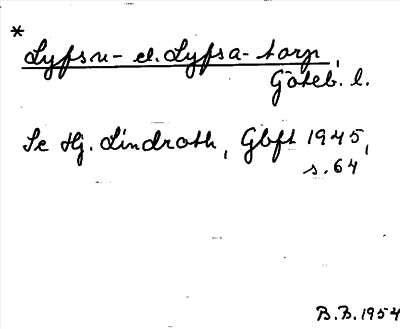 *
Lyfsu- el. Lyfsa-torp,
Göteb. l.
Se Hj. Lindroth, Gbft 1945,
s. 64
B.B. 1954